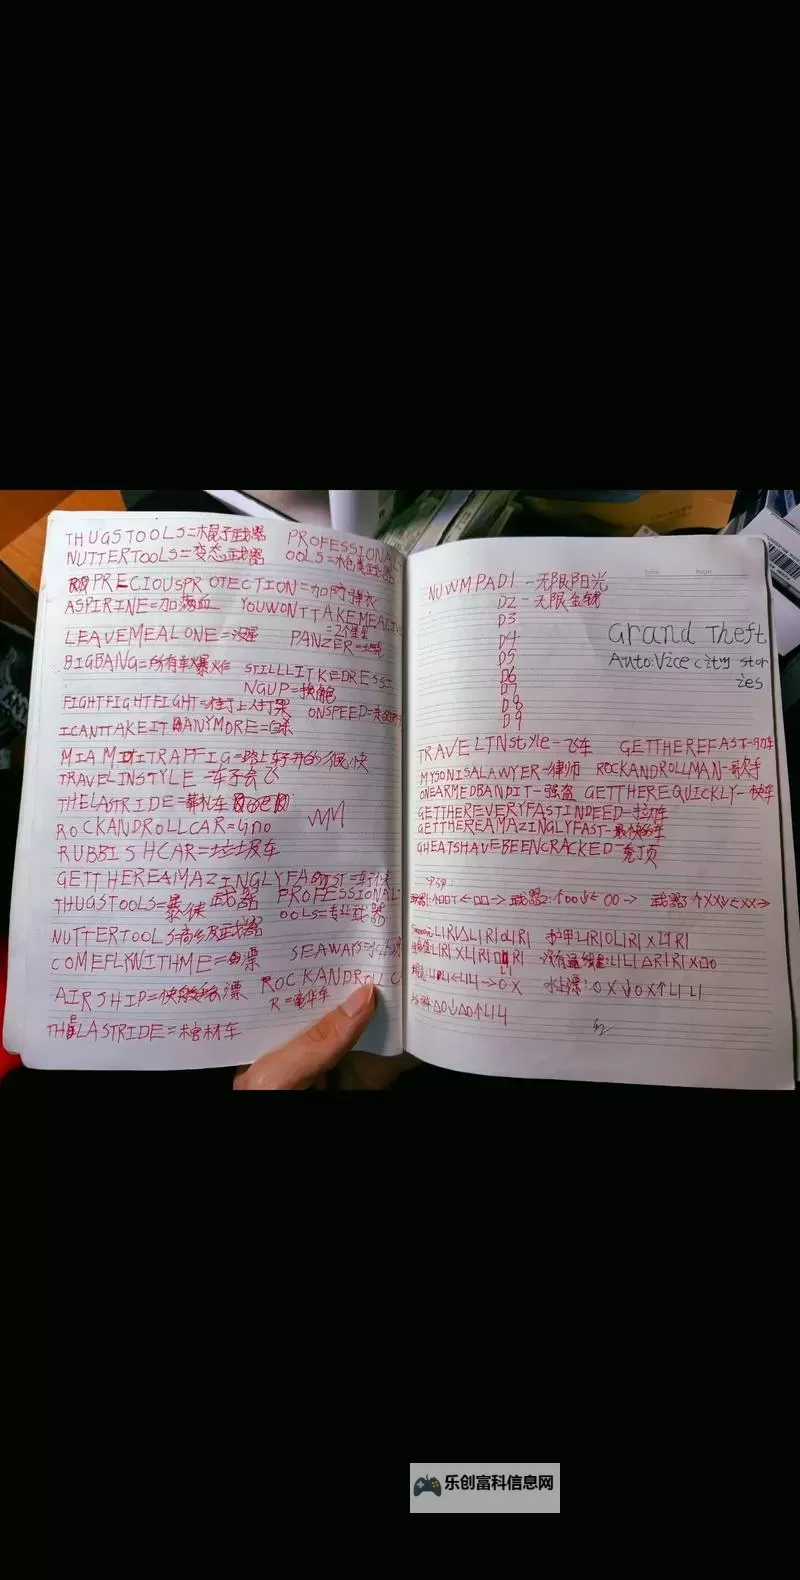 THUGSTOOLS=棍子武器
PROFESSIONAL
NUTTERTOOLS=变态武器
OOLS=枪类武器
PRECIOUSPROTECTION=加防弹衣
ASPIRINE=加满血
YOUWONTTAKEMEALIVE
=2个星星
LEAVEMEALONE=没星
PANZER=坦克
BIGBANG=所有车爆炸
STILLLITKEDRESSI
NGUP=换
FIGHTFIGHTFIGHT=街上人打架
ONSPEED=走
ICANTTAKEITANYMORE=自杀
MIAMITRAFFIG=路上车开的很快
TRAVELINSTYLE=车子会飞
THELASTRIDE=葬礼车
ROCKANDROLLCAR=Lino
RUBBISHCAR=垃圾车
GETTHEREAMAZINGLYFAST=车
THUGSTOOLS=暴徒武器
PROFESSIONAL
OOLS=专业武器
NUTTERTOOLS=高级武器
SEAWAYS=水上
COMEFLYWITHME=漂
ROCKANDROLLC
AIRSHIP=快漂
R=豪华车
THELASTRIDE=棺材车
NUWMPAD1-无限阳光
D2-无限金钱
D3
D4
Grand Theft
D5
Auto:Vice city stor
D6
ies
D7
D8
D9
TRAVELTNstyle-飞车
GETTHEREFAST-
MYSONISALAWYER-律师
ROCKANDROLLMAN-歌手
ONEARMEDBANDIT-强盗
GETTHEREQUICKLY-快车
GETTHEREVERYFASTINDEED-
GETTHEREAMAZINGLYFAST-最快的车
GHEATSHAVEBEENCRACKED-秃顶
武器2:↑○○↓←○○→
武器3:↑XX↓←XX→
护甲LIRIOLIRIXLIRI
水上漂:○X↓○X↑LILI
△○↓△○↑LILI
乐创富科信息网